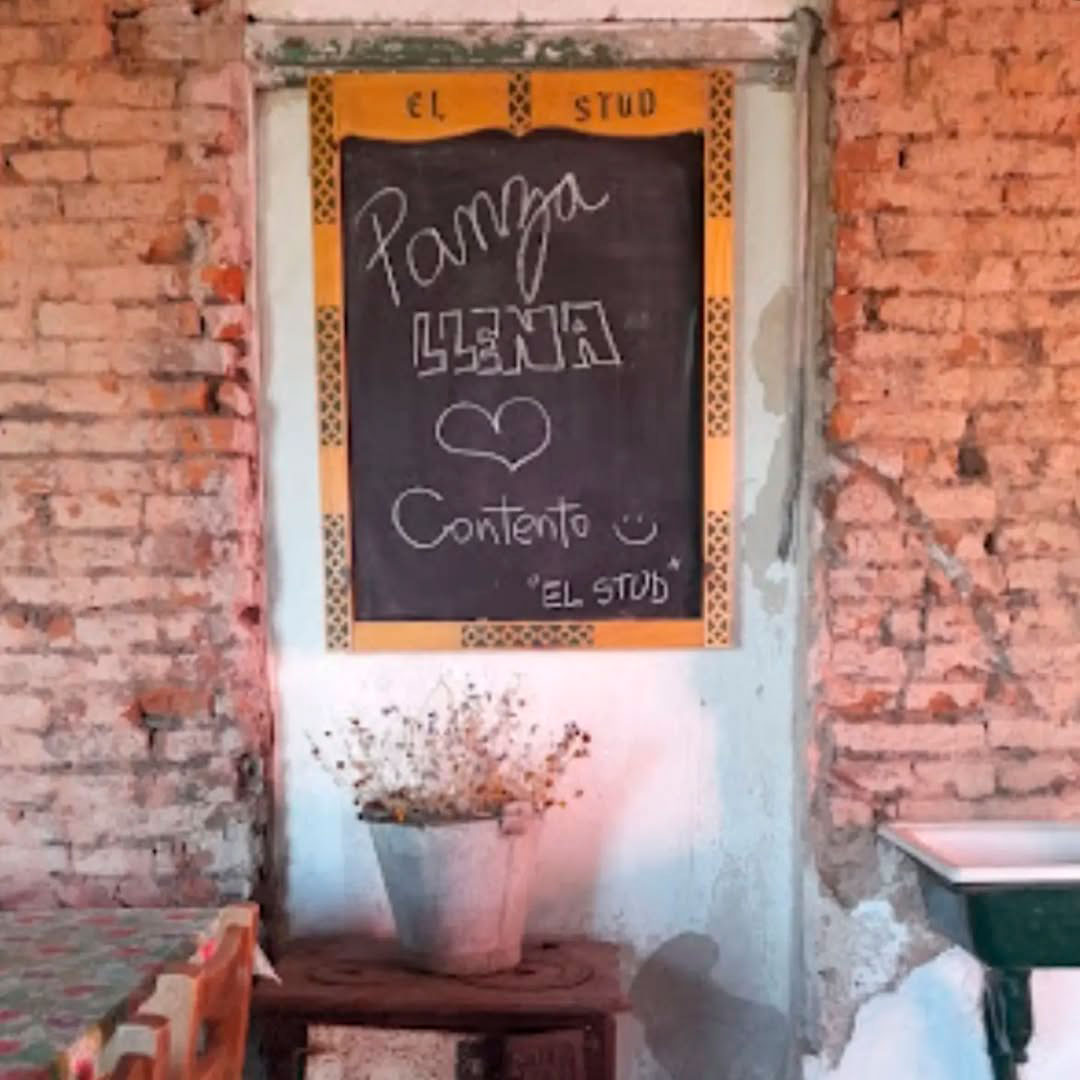 EL STUD
Panza
LLENA
Contento
"EL STUD"